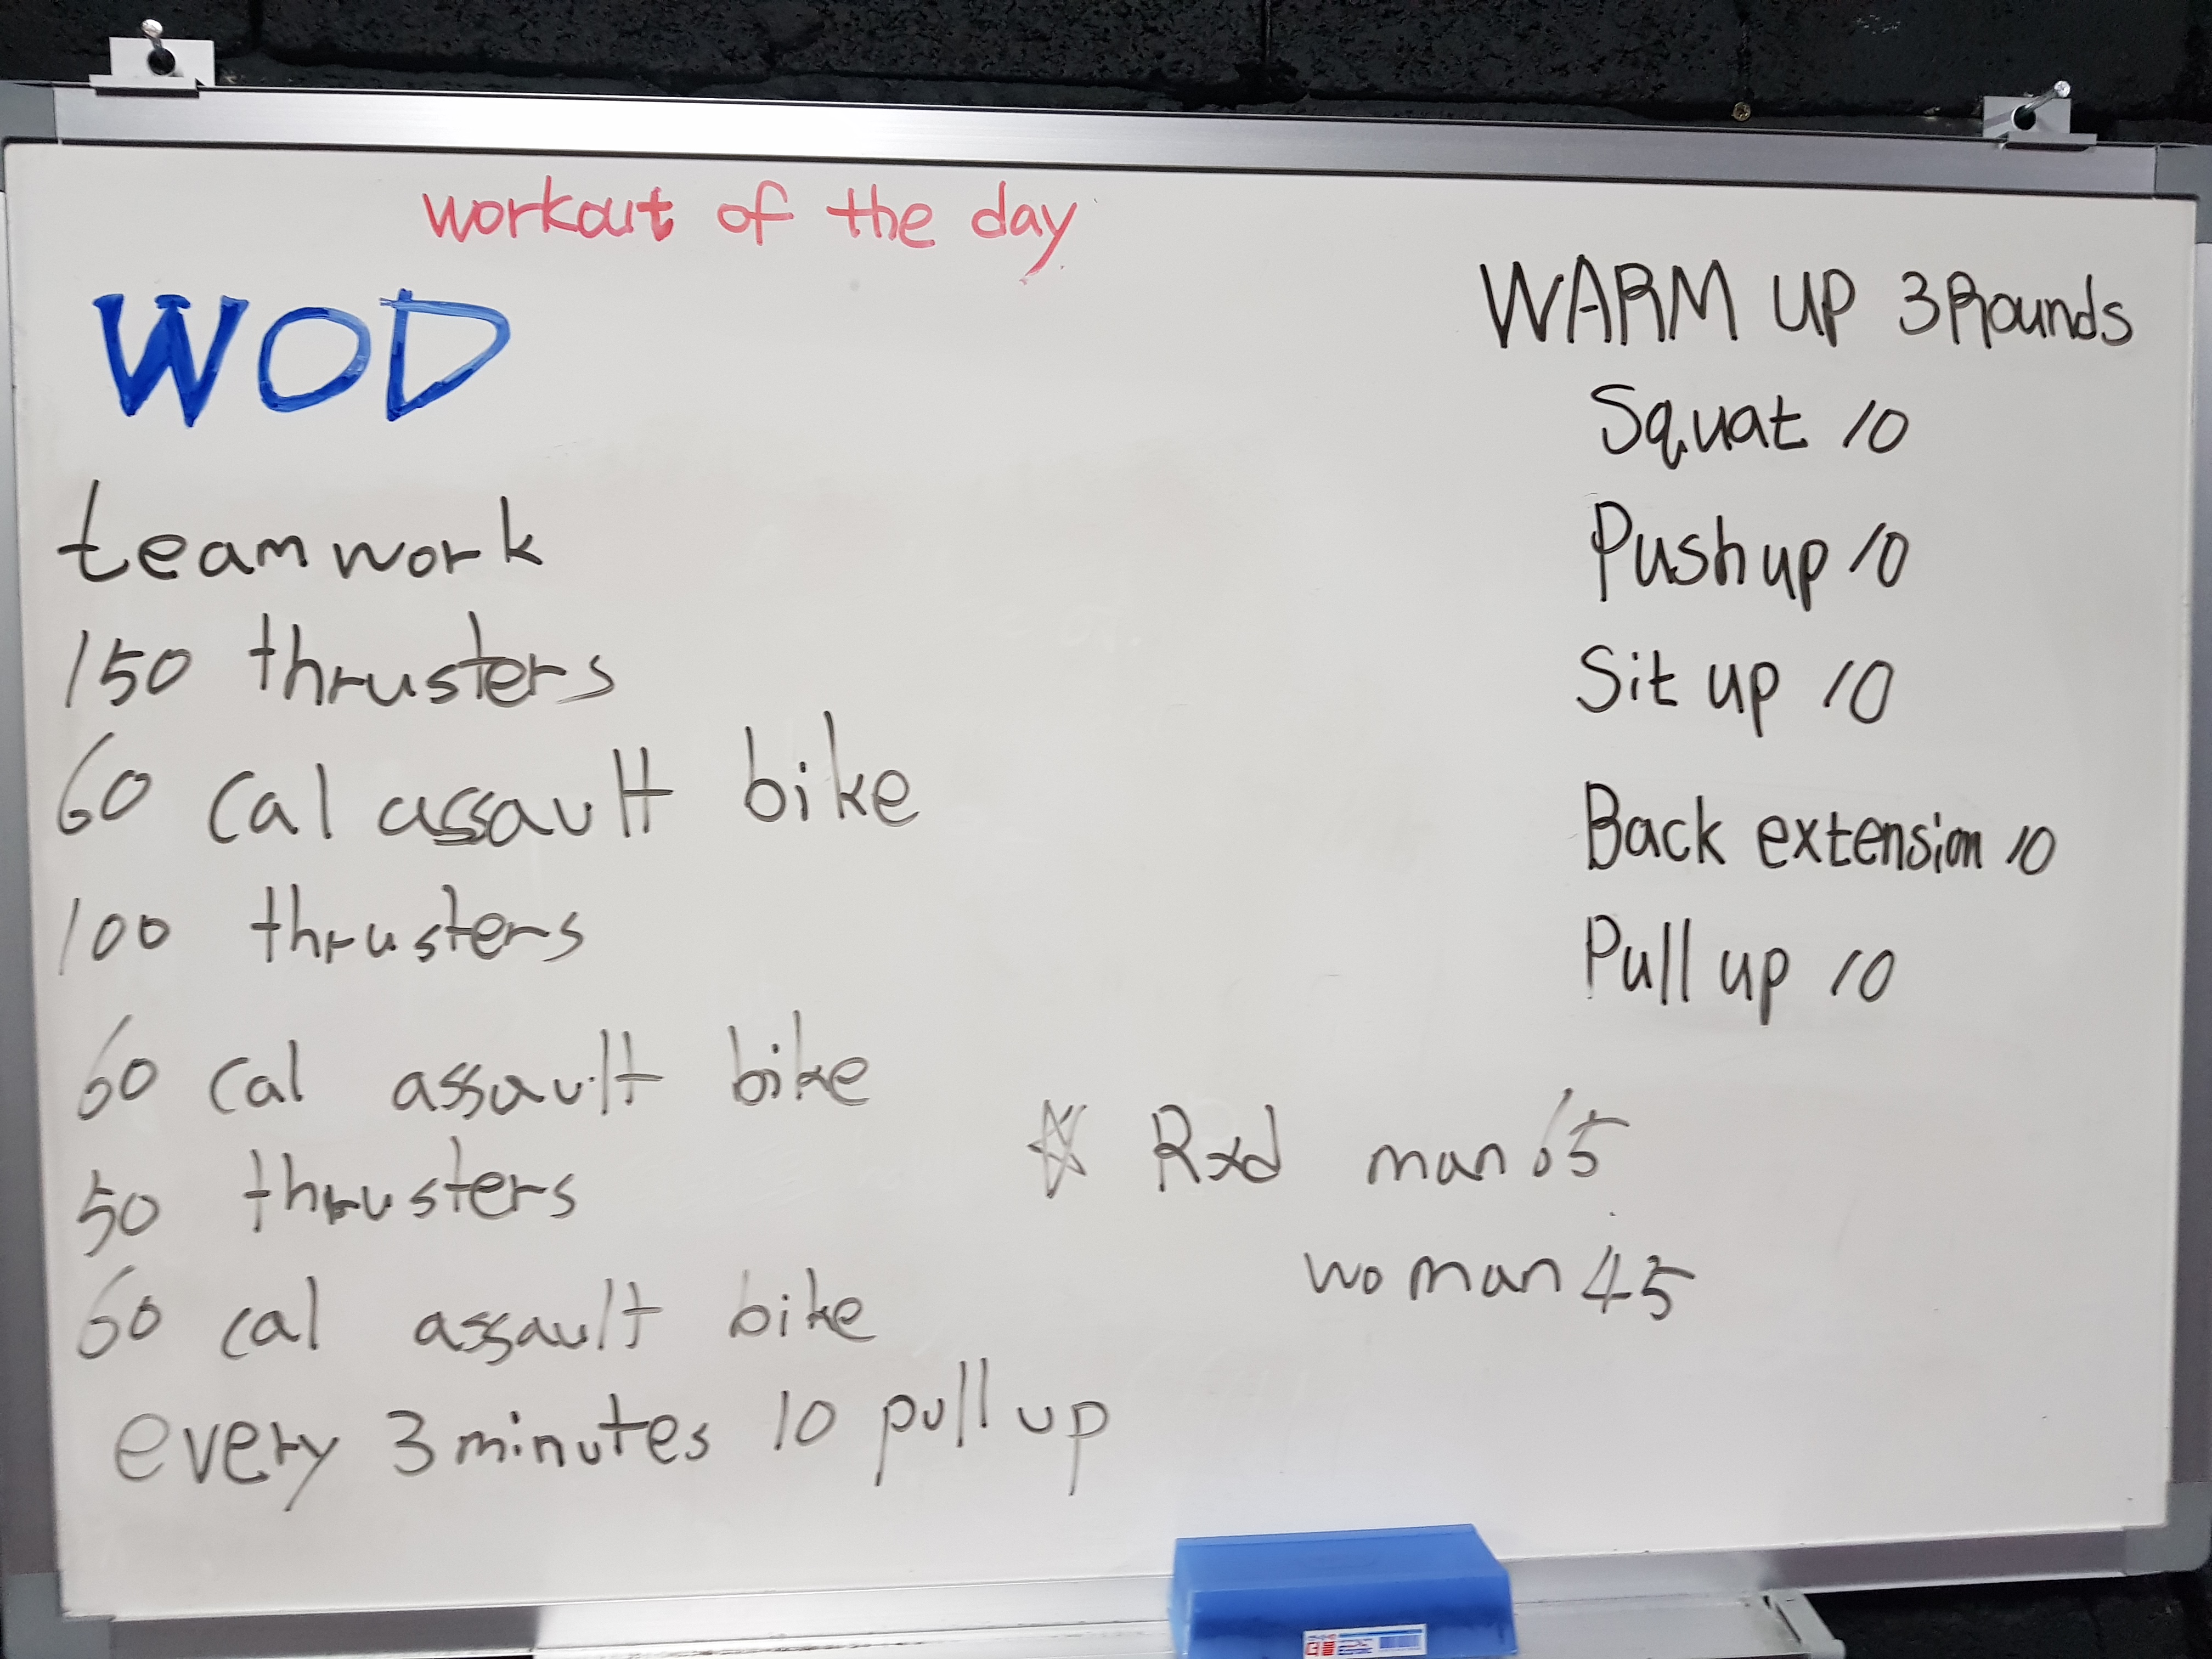 workout of the day
WOD
teamwork
150 thrusters
60 cal assault bike
100 thrusters
60 cal assault bike
50 thrusters
60 cal assault bike
every 3 minutes 10 pull up
WARM UP 3 Rounds
Squat 10
Push up 10
Sit up 10
Back extension 10
Pull up 10
☆ Rxd man 65
woman 45